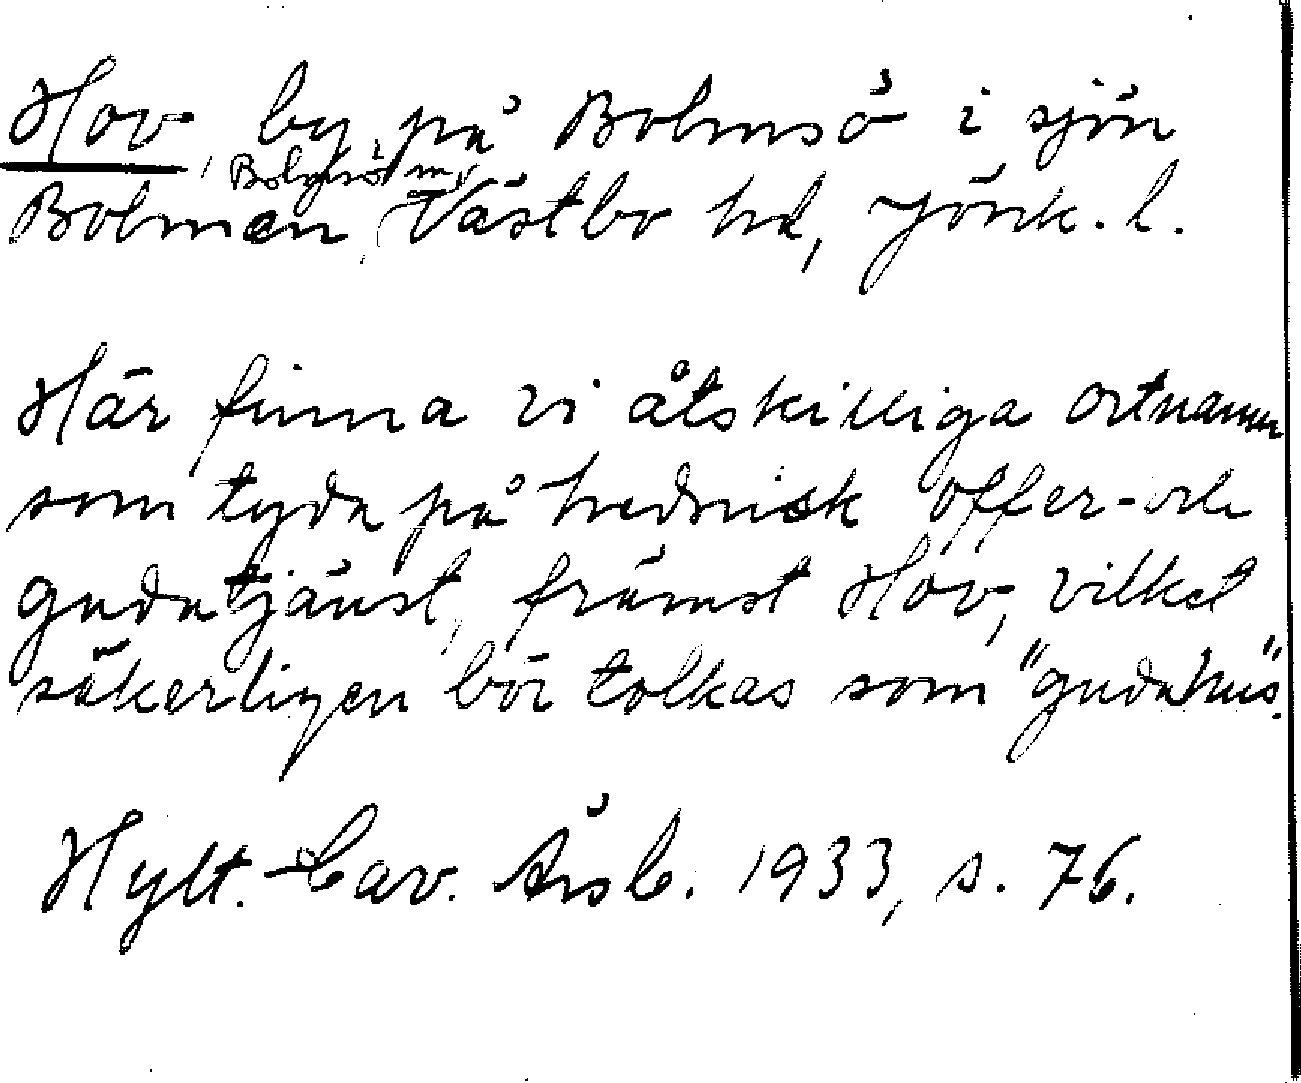 Hov, by på Bolmsö i sjön
Bolmsö
Bolmen, Västbo hd, Jönk. l.
Här finna vi åtskilliga ortnamn
som tyda på hednisk offer- och
gudatjänst, främst Hov, vilket
säkerligen bör tolkas som "gudahus".
Hylt.-Cav. Årsb. 1933, s. 76.